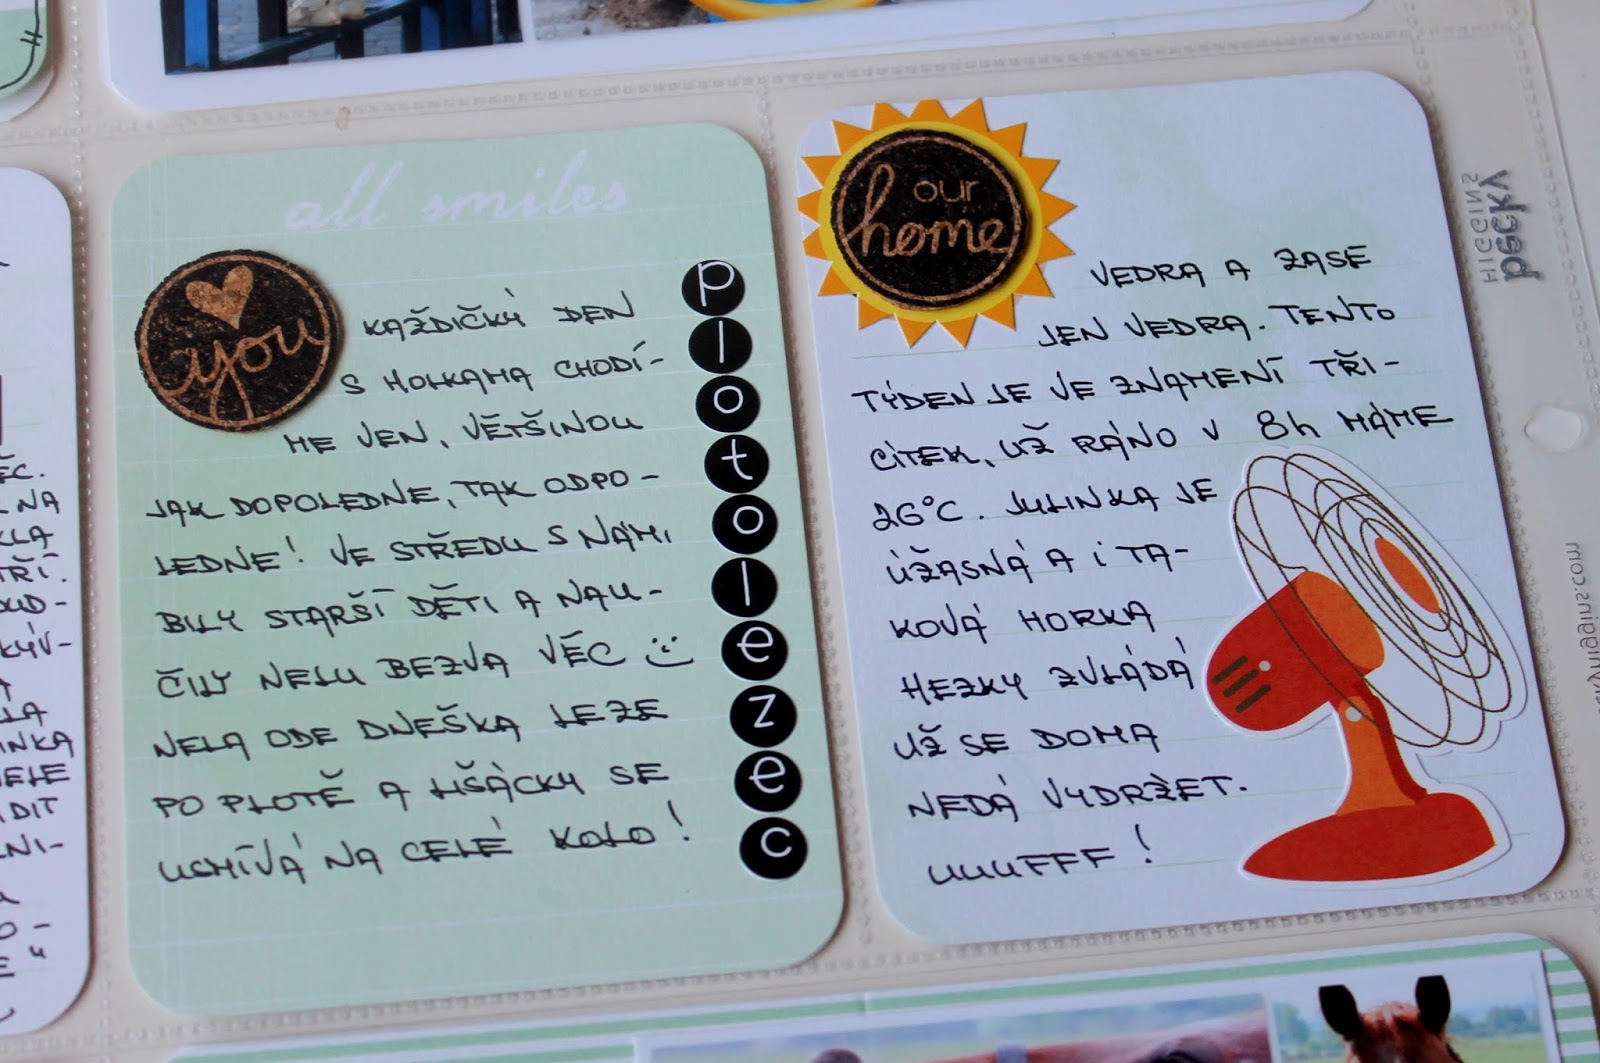 all smiles
you
KAŽDIČKÝ DEN
S HOLKAMA CHODÍ-
ME VEN, VĚTŠINOU
JAK DOPOLEDNE, TAK ODPO-
LEDNE! VE STŘEDU S NÁMI
BILY STARŠÍ DĚTI A NAU-
ČILY NELU BEZVA VĚC
NELA ODE DNEŠKA LEZE
PO PLOTĚ A LIŠÁCKY SE
USMÍVÁ NA CELÉ KOLO!
plotolezec
our
home
VEDRA A ZASE
JEN VEDRA. TENTO
TÝDEN JE VE ZNAMENÍ TŘI-
CÍTEK, UŽ RÁNO V 8h MÁME
26°C. JULINKA JE
ÚŽASNÁ A I TA-
KOVÁ HORKA
HEZKY ZVLÁDÁ
UŽ SE DOMA
NEDÁ VYDRŽET.
UUUFFF!
HIGGINS
becky
NA
KLA
TŘÍ.
OUD-
KÝV-
A
LA
INKA
ELE
DIT
LNI-